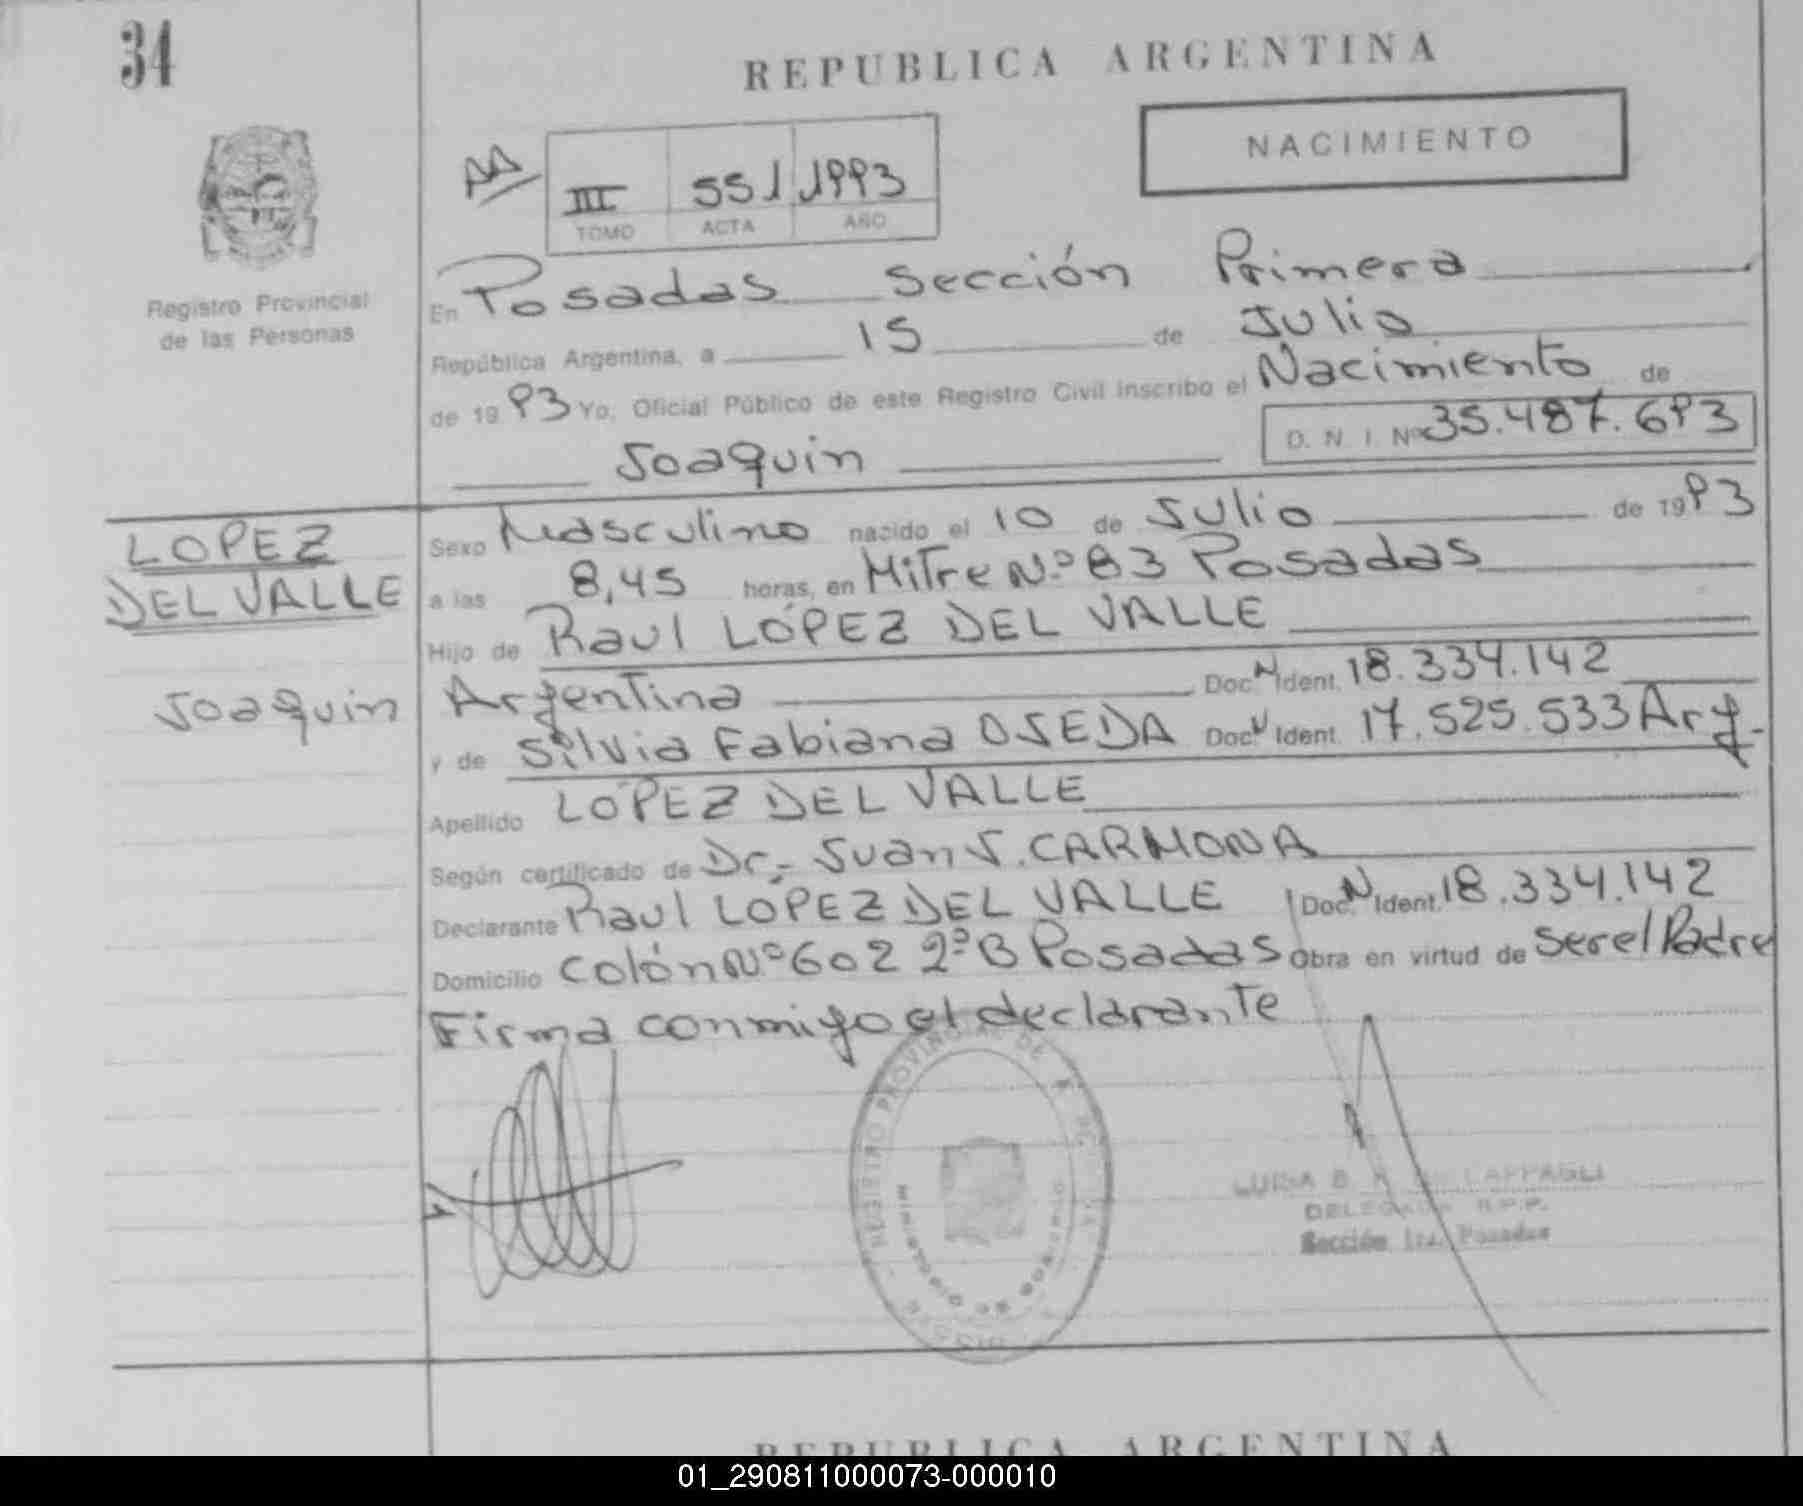 34
REPUBLICA ARGENTINA
NACIMIENTO
III 551 1993
TOMO ACTA AÑO
Registro Provincial
de las Personas
En Posadas Sección Primera
República Argentina, a 15 de Julio
de 1993 Yo, Oficial Público de este Registro Civil Inscribo el Nacimiento de
Joaquin D. N. I. Nº 35.487.693
LOPEZ
DEL VALLE
Joaquin
Sexo Masculino nacido el 10 de Julio de 1993
a las 8,45 horas, en Mitre Nº 83 Posadas
Hijo de Raul LÓPEZ DEL VALLE
Argentina Doc. N Ident. 18.334.142
y de Silvia Fabiana OJEDA Doc. N Ident. 17.525.533 Arg.
Apellido LÓPEZ DEL VALLE
Según certificado de Dr.- Juan J. CARMONA
Declarante Raul LÓPEZ DEL VALLE Doc. N Ident. 18.334.142
Domicilio Colón Nº 602 2º B Posadas Obra en virtud de ser el Padre
Firma conmigo el declarante
REGISTRO PROVINCIAL DE
MINISTERIO DE GOBIERNO
LUISA B. LAPPAGLI
DELEGADA R.P.P.
Sección 1ra. Posadas
REPUBLICA ARGENTINA
01_290811000073-000010